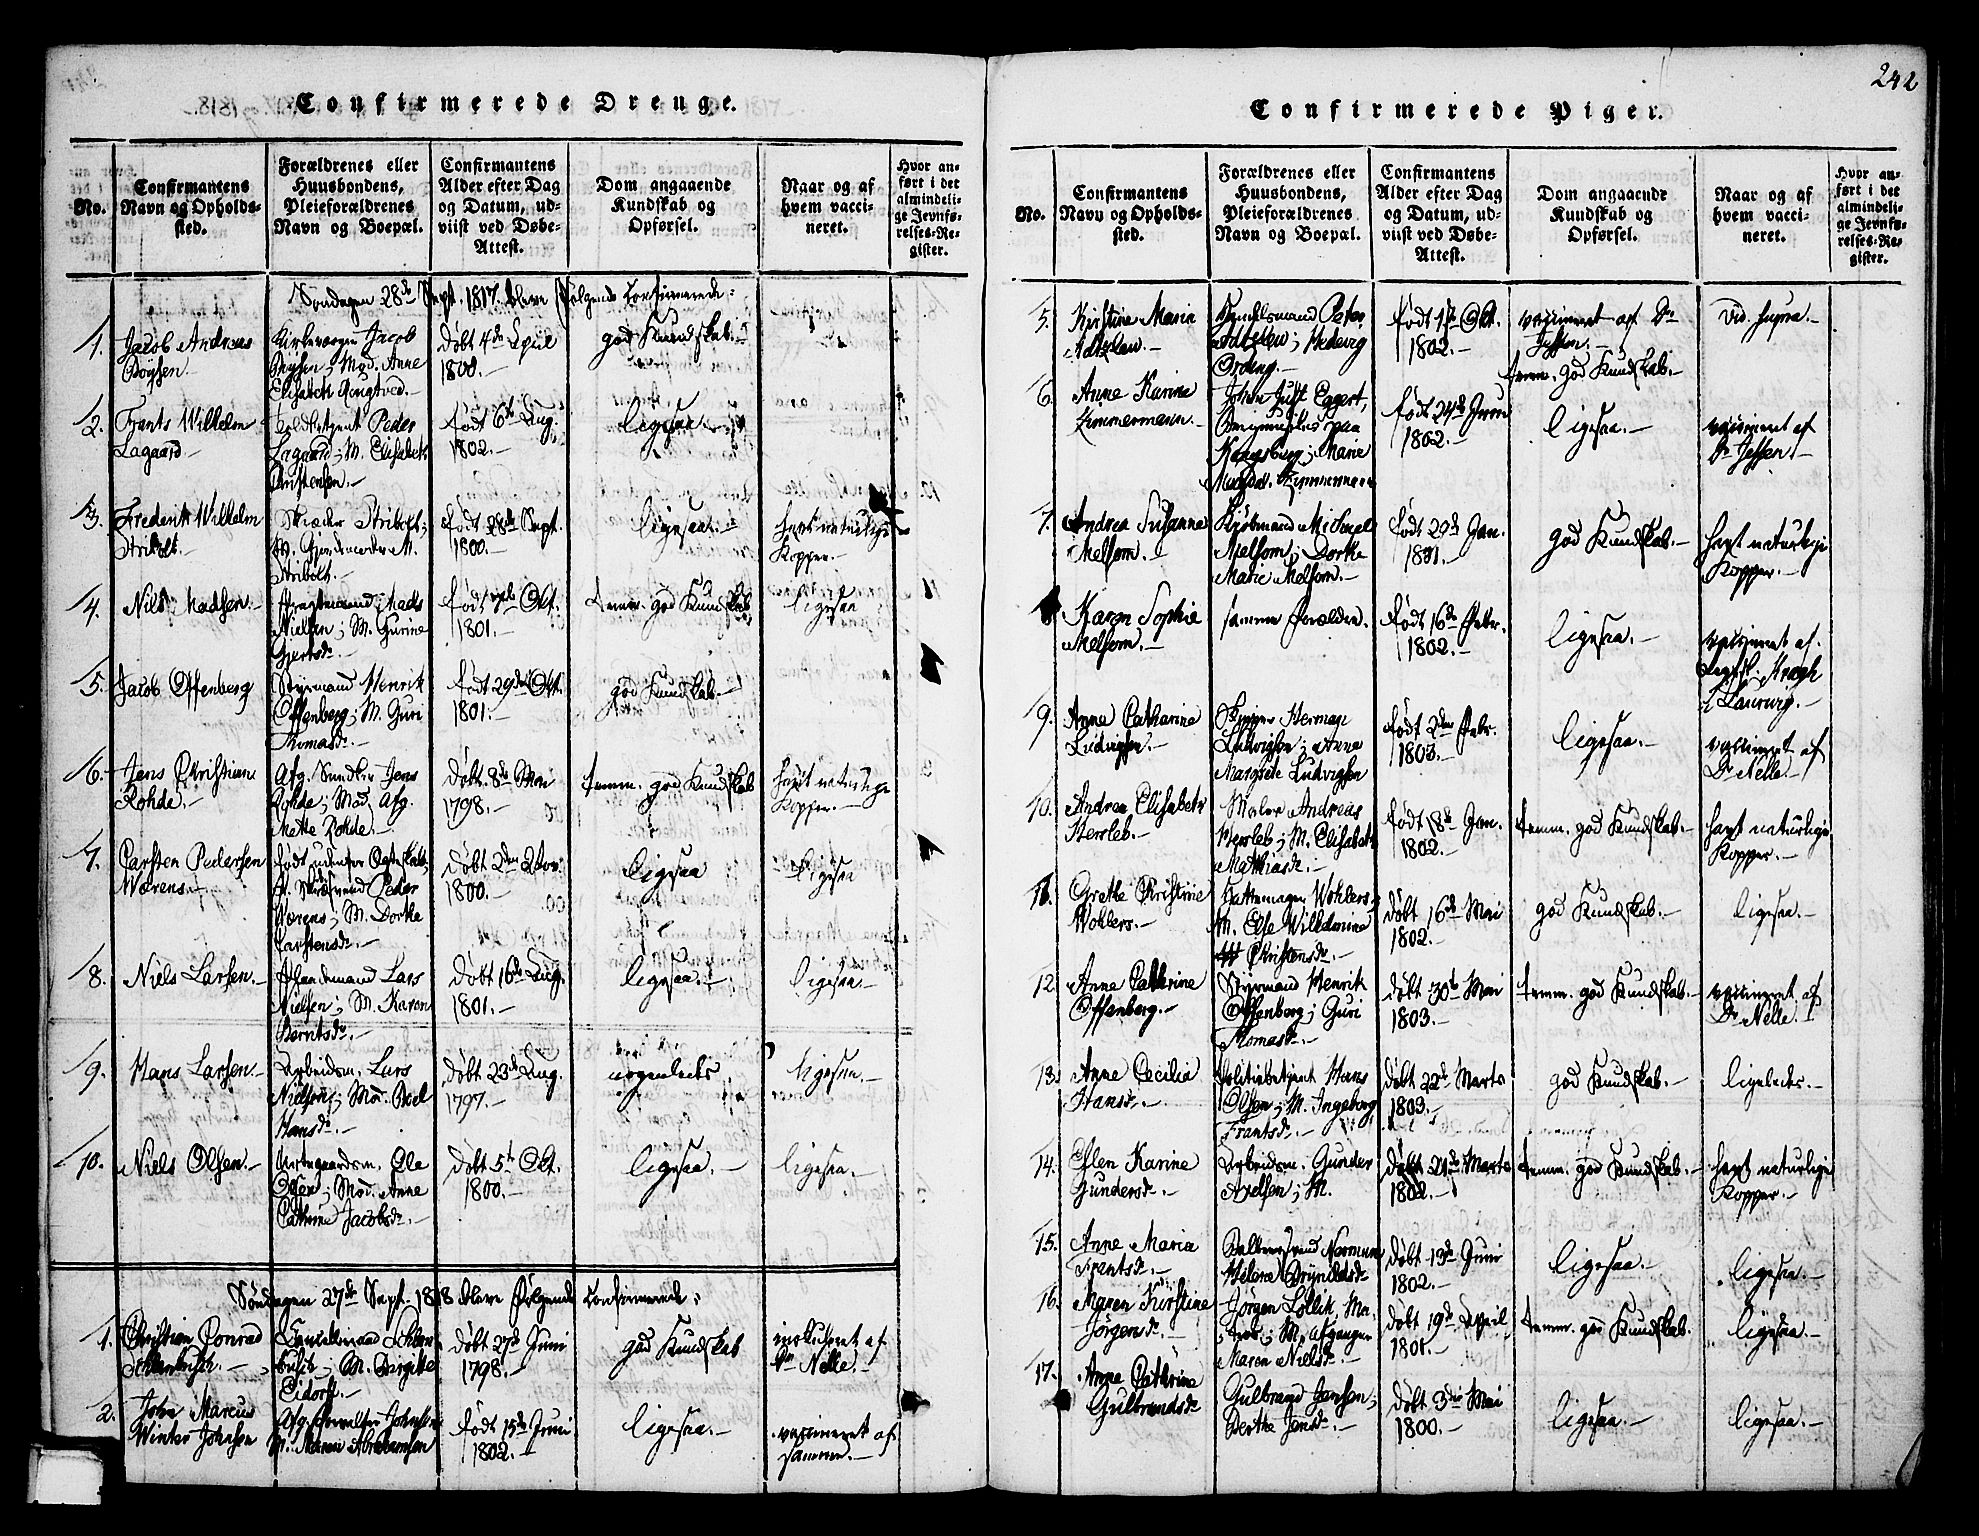 Confirmerede Drenge.
No.
Confirmantens Navn og Opholdssted.
Forældrenes eller Huusbondens, Pleieforældrenes Navn og Boepæl.
Confirmantens Alder efter Dag og Datum, udviist ved Døbe-Attest.
Dom angaaende Kundskab og Opførsel.
Naar og af hvem vaccineret.
Hvor anført i det almindelige Jevnførelses-Register.
Søndagen 28de Sept. 1817 bleve følgende Confirmerede:
1. Jacob Andreas Boysen
Jacob Boysen; Mod. Anne Elisabeth
Døbt 4de April 1800.
god Kundskab.
2. Frants Wilhelm Lagaard.
Peder Lagaard; M. Elisabeth Christensen.
født 6te Aug. 1802.
ligesaa.
3. Frederik Wilhelm Stribolt.
Skræder Stribolt; M. Stribolt.
født 28de Sept. 1800.
ligesaa.
havt naturlige Kopper.
4. Nils Madsen.
Mads Nielsen; M. Gurine Gjertsd.
født 7de Okt. 1801.
temm. god Kundskab
ligesaa
5. Jacob Offenberg
Styrmand Henrik Offenberg; M. Guri Thomasd.
født 29de Okt. 1801.
god Kundskab.
6. Jens Christian Rohde.
Afg. Jens Rohde; Mod. Afg. Mette Rohde.
Døbt 8de Mai 1798.
temm. god Kundskab
havt naturlige Kopper.
7. Carsten Pedersen Wærens.
født udenfor Egteskab; Peder Wærens; M. Dorthe Carstensd.
Døbt 2den Nov. 1800.
ligesaa
ligesaa
8. Niels Larsen.
Lars Nielsen; M. Karen Berntsd.
Døbt 16de Aug. 1801.
ligesaa.
ligesaa.
9. Hans Larsen.
Arbeidsm. Lars Nielsen; Mod. Hansd.
Døbt 23de Aug. 1797.
nogenleds
ligesaa.
10. Niels Olsen.
Ole Olsen; Mod. Anne Cathrine Jacobsd.
Døbt 5te Okt. 1800.
ligesaa.
ligesaa.
Søndagen 27de Sept. 1818 bleve følgende Confirmerede:
1. Christian Conrad
M. Eidorff.
Døbt 27de Juni 1798.
god Kundskab
af Dr. Nelle.
2. John Marcus Winter Johnsen
Afg. Johnsen M. Maren Abrahamsen
født 15de Juni 1802.
ligesaa.
vaccineret af samme.
242
Confirmerede Piger.
No.
Confirmantens Navn og Opholdssted.
Forældrenes eller Huusbondens, Pleieforældrenes Navn og Boepæl.
Confirmantens Alder efter Dag og Datum, udviist ved Døbe-Attest.
Dom angaaende Kundskab og Opførsel.
Naar og af hvem vaccineret.
Hvor anført i det almindelige Jevnførelses-Register.
5. Kirstine Maria Adtzlew.
Peter Adtzlew; Hedevig
født 1ste Okt. 1802.
vaccineret af Dr. Jessen.
temm. god Kundskab.
vid. supra.
6. Anne Karine Zimmermann.
Johan Just Eggert, paa Kongsberg; Marie Magdal. Zimmermann
født 24de Juni 1802.
ligesaa.
vaccineret af Dr. Jessen
7. Andrea Susanne Melsom.
Kjøbmand Michael Melsom; Dorthe Marie Melsom.
født 29de Jan. 1801.
god Kundskab.
havt naturlige Kopper.
Karen Sophie Melsom.
samme Forældre.
født 16de Febr. 1802.
ligesaa.
vaccineret af Kragh i Laurvig.
9. Anne Catharine Ludvigsen.
Skipper Herman Ludvigsen; Anne Margrete Ludvigsen
født 2den Febr. 1803.
ligesaa.
vaccineret af Dr. Nelle.
10. Andrea Elisabeth Hersleb.
Maler Andreas Hersleb; M. Elisabeth Mathiasd.
født 18de Jan. 1802.
temm. god Kundskab.
havt naturlige Kopper.
11. Grethe Christine Wohlers.
Hattemager Wohlers M. Else Wilhelmine Christensd.
Døbt 16de Mai 1802.
god Kundskab.
ligesaa.
12. Anne Cathrine Offenberg.
Styrmand Henrik Offenberg; Guri Thomasd.
Døbt 30te Mai 1803.
temm. god Kundskab.
vaccineret af Dr. Nelle.
13. Anne Cecilia Hansd.
Politiebetjent Hans Olsen; M. Ingeborg Frantsd.
Døbt 22de Marts 1803.
god Kundskab.
ligeledes.
14. Ellen Karine Gundersd.
Arbeidsm. Gunder Axelsen; M.
Døbt 21de Marts 1802.
temm. god Kundskab.
havt naturlige Kopper.
15. Anne Maria Frantsd.
Helene Brynildsd.
Døbt 13de Juni 1802.
ligesaa.
ligesaa.
16. Maren Kirstine Jørgensd.
Jørgen Lollik, M. Maren Nielsd.
Døbt 19de April 1801.
temm. god Kundskab.
ligesaa.
17. Anne Cathrine Gulbrandsd.
Gulbrand Jensen; Berthe Jensd.
Døbt 3die Mai 1800.
ligesaa.
ligesaa.